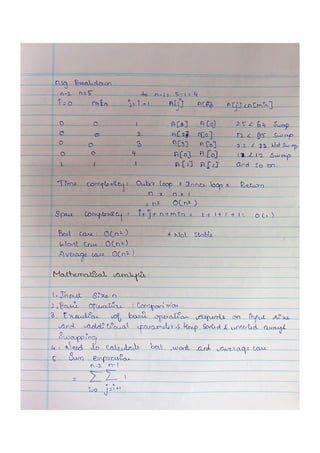 Alg Breakdown
n=5
i=0 min j=i+1 A[j] A[j]<A[min]
0 0 1 A[1] A[0] 25 < 64 Swap
0 0 2 A[2] A[0] 12 < 25 Swap
0 0 3 A[3] A[0] 22 < 12 Not Swap
0 0 4 A[4] A[0] 11 < 12 Swap
1 1 1 A[1] A[1] and so on.
Time complexity: Outer loop × Inner loop × Return
n × n × 1
= n² O(n²)
Space complexity: i+j+n+min = 1+1+1+1 = O(1)
Best case: O(n²) * Not Stable
Worst case: O(n²)
Average case O(n²)
Mathematical analysis:
1. Input Size n
2. Basic operation: Comparision
3. Execution of basic operation depends on input size
and additional parameters keep sorted & unsorted array
Swapping
4. Need to calculate best, worst and average case
5. Sum expression
n-2 n-1
= Σ Σ 1
i=0 j=i+1